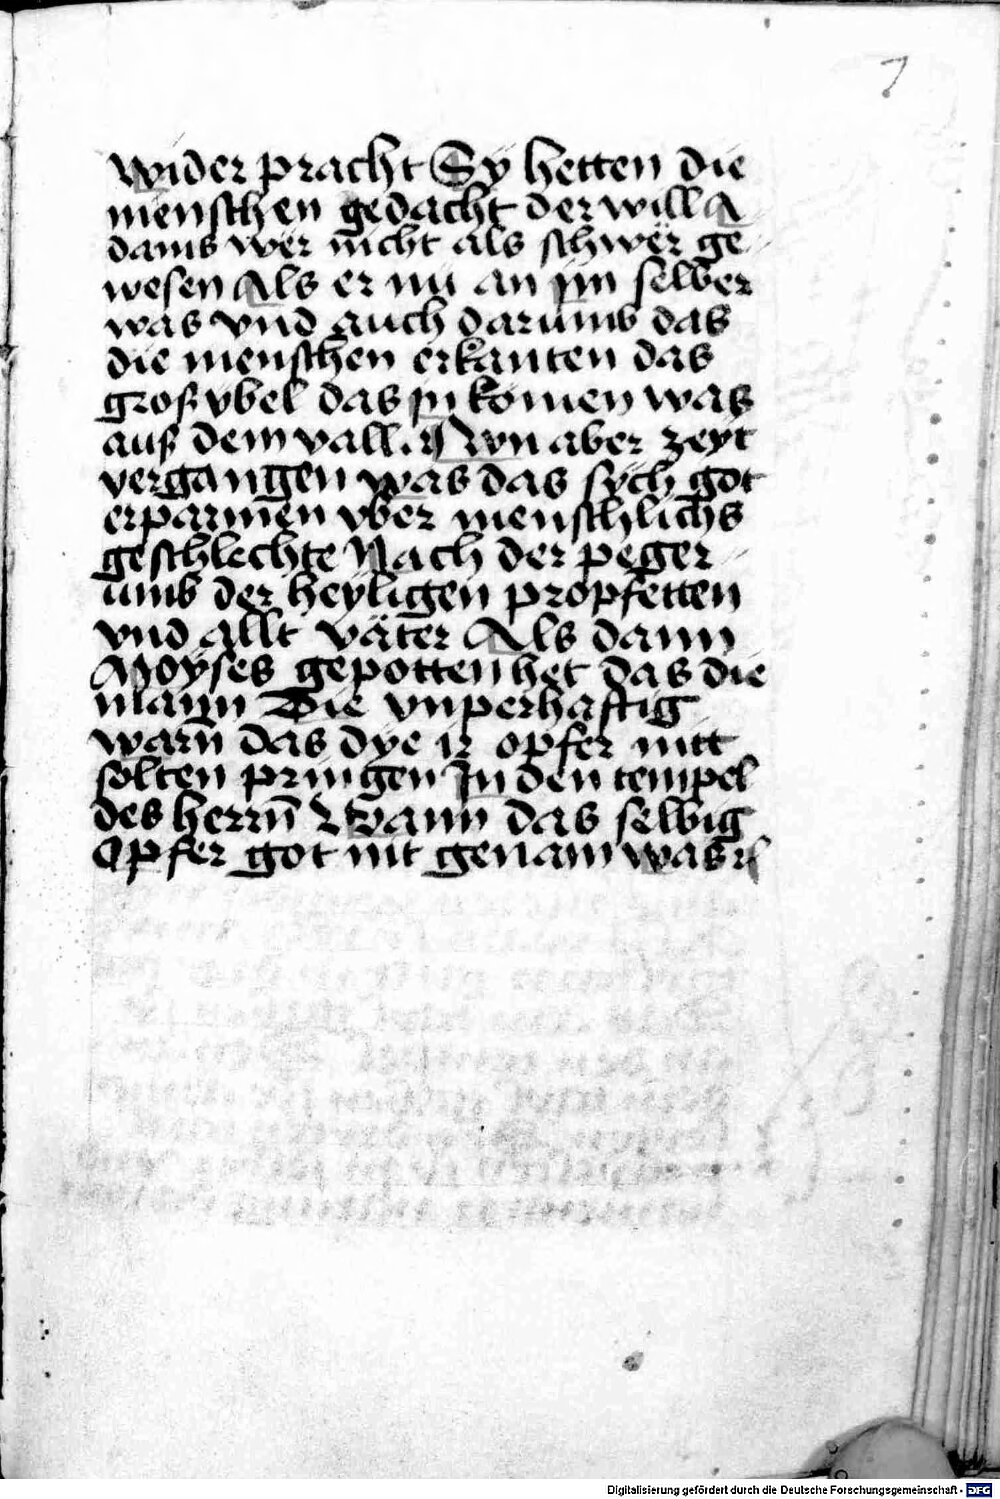 7
wider pracht Sy hetten die
menschen gedacht der will A
dams wer nicht als schwër ge
wesen Als er nü an ym selber
was vnd auch darumb das
die menschen erkanten das
groß vbel das yn komen was
auß dem vall. Nvn aber zeyt
vergangen was das sych got
erparmen vber menschlichs
geschlechte Nach der peger
umb der heyligen propfetten
vnd allt väter Als dann
Moyses gepotten het das die
mann Die vnperhafftig
warn̄ das dye ir opfer nitt
solten pringen In den tempel
des herrn̄ Wann das selbig
Opfer got nit genam was
Digitalisierung gefördert durch die Deutsche Forschungsgemeinschaft - DFG